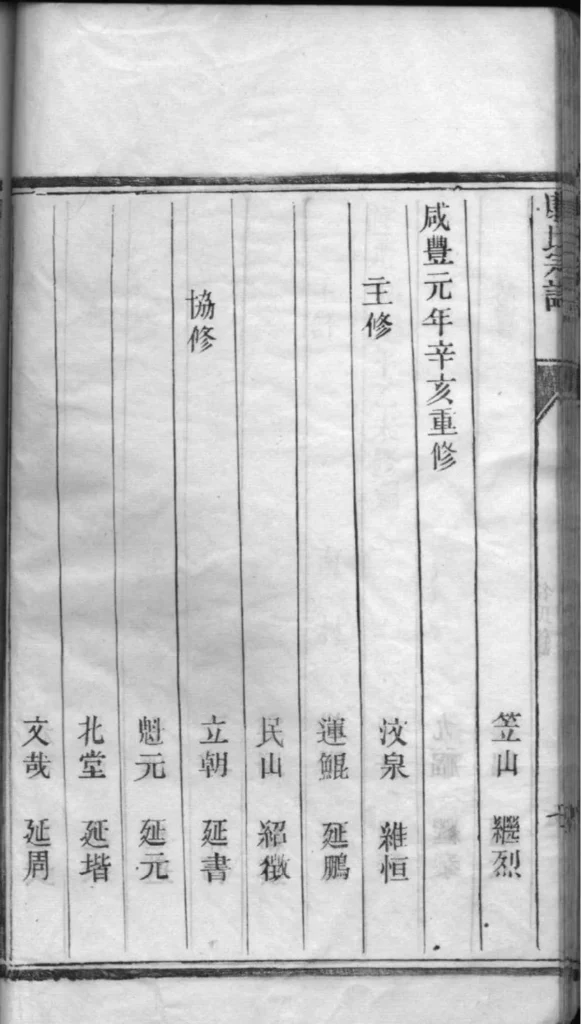 氏宗譜
笠山 繼烈
咸豐元年辛亥重修
主修 汶泉 維恒
運鯤 延鵬
民山 紹徵
協修 立朝 延書
魁元 延元
北堂 延堦
文哉 延周